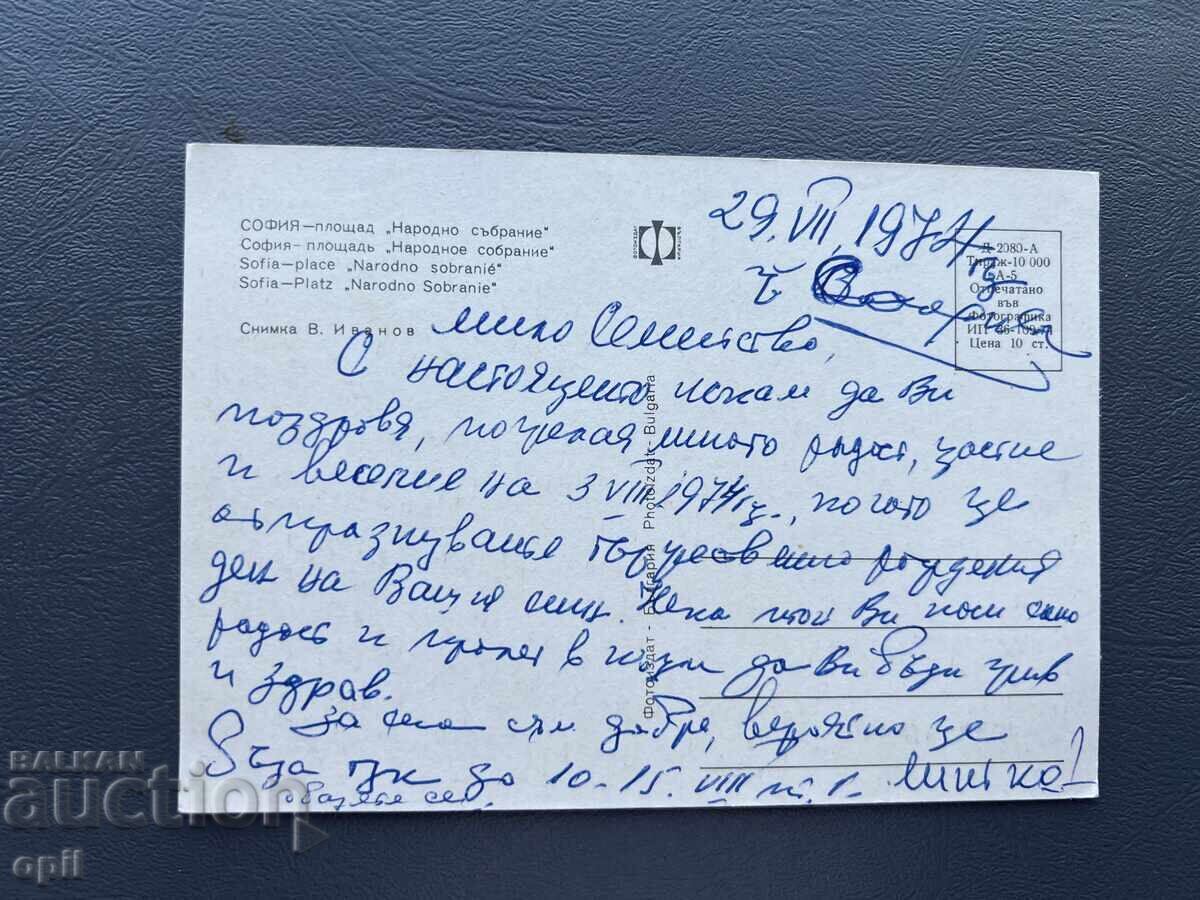 СОФИЯ—площад „Народно събрание“
София- площадь „Народное собрание“
Sofia—place „Narodno sobranié“
Sofia—Platz „Narodno Sobranie“
Снимка В. Иванов
ФОТОИЗДАТ
БЪЛГАРИЯ
Д-2080-А
Тираж-10 000
А-5
Отпечатано
във
Фотографика
Цена 10 ст.
Фотоиздат - България Photoizdat - Bulgaria
29.VII.1974 г.
Мило Семейство,
С настоящето искам да Ви
поздравя, пожелая много радост, щастие
и веселие на 3 VIII 1974 г., когато ще
отпразнувате тържествено рождения
ден на Вашия син. Нека той Ви носи само
радост и да Ви бъди жив
и здрав.
За сега съм добре, вероятно ще
бъда тук до 10-15. VIII т.г. Митко!
обадете се.
BALKAN
auction
opil